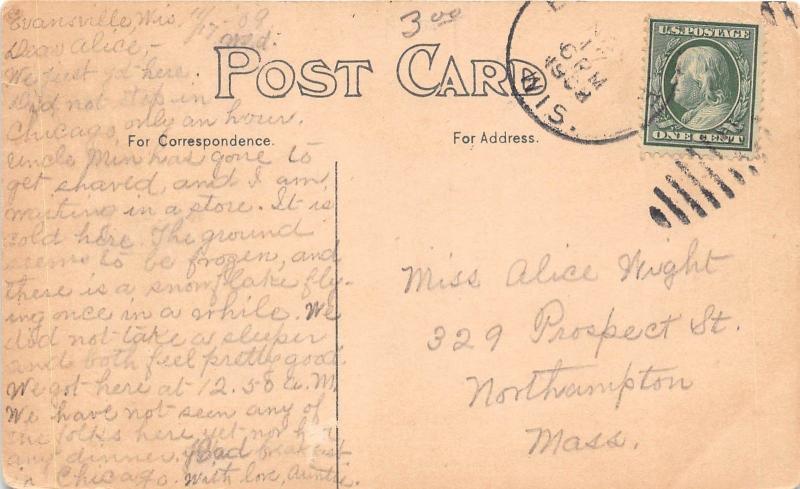 Evansville, Wis, 11/17-09
Wed.
3 00
Dear Alice,-
We just got here.
Did not stop in
Chicago, only an hour.
Uncle Min has gone to
get shaved, and I am
waiting in a store. It is
cold here. The ground
seems to be frozen, and
there is a snowflake fly-
ing once in a while. We
did not take a sleeper
and both feel pretty good.
We got here at 12.50 a.M.
We have not seen any of
the folks here yet nor had
any dinner. Had breakfast
in Chicago. With love, Auntie.
POST CARD
For Correspondence.
For Address.
WIS.
U.S. POSTAGE
ONE CENT
Miss Alice Wight
329 Prospect St.
Northampton
Mass.